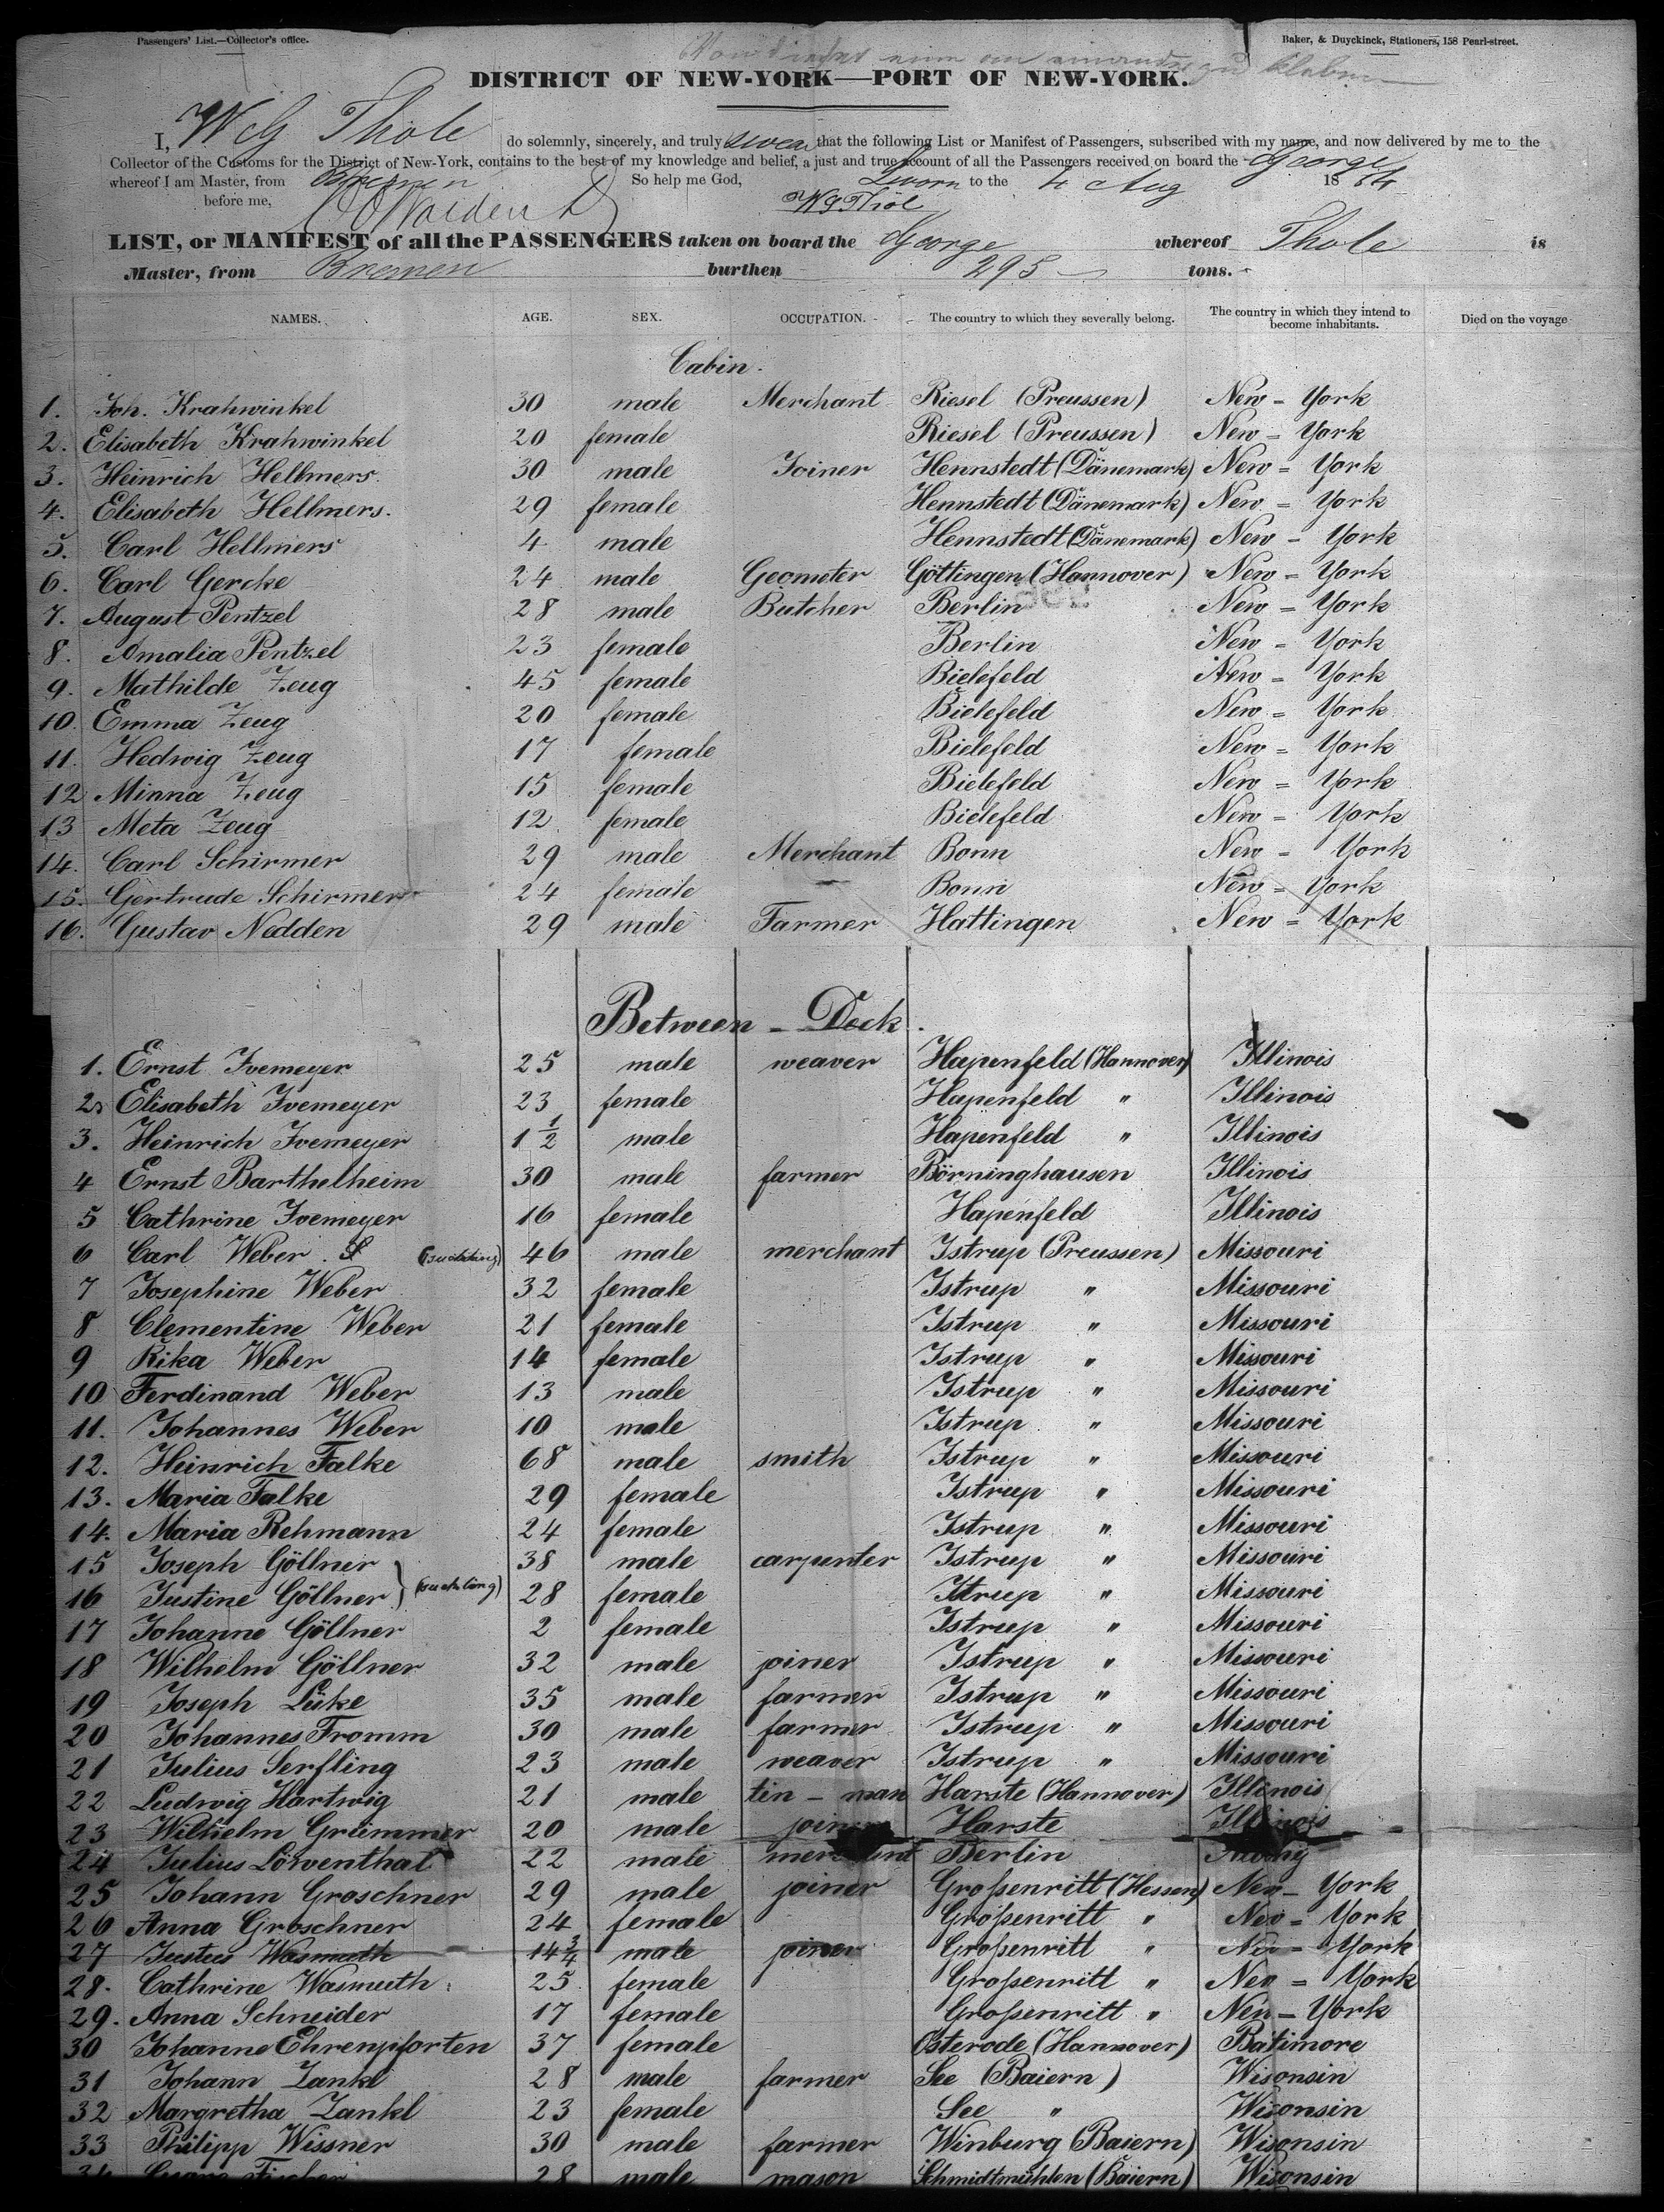 Passengers' List.—Collector's office.
Baker, & Duyckinck, Stationers, 158 Pearl-street.
DISTRICT OF NEW-YORK—PORT OF NEW-YORK.
I, W G Thole do solemnly, sincerely, and truly swear that the following List or Manifest of Passengers, subscribed with my name, and now delivered by me to the
Collector of the Customs for the District of New-York, contains to the best of my knowledge and belief, a just and true account of all the Passengers received on board the George
whereof I am Master, from Bremen So help me God, Sworn to the 4 Aug 1864
before me, W G Thöl
LIST, or MANIFEST of all the PASSENGERS taken on board the George whereof Thole is
Master, from Bremen burthen 295 tons.
NAMES. AGE. SEX. OCCUPATION. The country to which they severally belong. The country in which they intend to become inhabitants. Died on the voyage
Cabin.
1. Joh. Krahwinkel 30 male Merchant Riesel (Preussen) New = York
2. Elisabeth Krahwinkel 20 female Riesel (Preussen) New = York
3. Heinrich Hellmers. 30 male Joiner Hennstedt (Dänemark) New = York
4. Elisabeth Hellmers. 29 female Hennstedt (Dänemark) New = York
5. Carl Hellmers 4 male Hennstedt (Dänemark) New = York
6. Carl Gercke 24 male Geometer Göttingen (Hannover) New = York
7. August Pentzel 28 male Butcher Berlin New = York
8. Amalia Pentzel 23 female Berlin New = York
9. Mathilde Zeug 45 female Bielefeld New = York
10. Emma Zeug 20 female Bielefeld New = York
11. Hedwig Zeug 17 female Bielefeld New = York
12 Minna Zeug 15 female Bielefeld New = York
13 Meta Zeug 12 female Bielefeld New = York
14. Carl Schirmer 29 male Merchant Bonn New = York
15. Gertrude Schirmer 24 female Bonn New = York
16. Gustav Nedden 29 male Farmer Hattingen New = York
Between - Deck.
1. Ernst Ivemeyer 25 male weaver Hapenfeld (Hannover) Illinois
2. Elisabeth Ivemeyer 23 female Hapenfeld " Illinois
3. Heinrich Ivemeyer 1 1/2 male Hapenfeld " Illinois
4 Ernst Barthelheim 30 male farmer Börninghausen Illinois
5 Cathrine Ivemeyer 16 female Hapenfeld Illinois
6 Carl Weber (suckling) 46 male merchant Istrup (Preussen) Missouri
7 Josephine Weber 32 female Istrup " Missouri
8 Clementine Weber 21 female Istrup " Missouri
9 Rika Weber 14 female Istrup " Missouri
10 Ferdinand Weber 13 male Istrup " Missouri
11. Johannes Weber 10 male Istrup " Missouri
12. Heinrich Falke 68 male smith Istrup " Missouri
13. Maria Falke 29 female Istrup " Missouri
14. Maria Rehmann 24 female Istrup " Missouri
15 Joseph Göllner 38 male carpenter Istrup " Missouri
16 Justine Göllner (suckling) 28 female Istrup " Missouri
17 Johanne Göllner 2 female Istrup " Missouri
18 Wilhelm Göllner 32 male joiner Istrup " Missouri
19 Joseph Lüke 35 male farmer Istrup " Missouri
20 Johannes Fromm 30 male farmer Istrup " Missouri
21 Julius Serfling 23 male weaver Istrup " Missouri
22 Ludwig Hartwig 21 male tin - man Harste (Hannover) Illinois
23 Wilhelm Grümmer 20 male joiner Harste Illinois
24 Julius Löwenthal 22 male merchant Berlin
25 Johann Groschner 29 male joiner Großenritt (Hessen) New = York
26 Anna Groschner 24 female Großenritt " New = York
27 Justus Wasmuth 14 3/4 male joiner Großenritt " New = York
28. Cathrine Wasmuth 25 female Großenritt " New = York
29. Anna Schneider 17 female Großenritt " New = York
30 Johanne Ehrenpforten 37 female Osterode (Hannover) Batimore
31 Johann Zankl 28 male farmer See (Baiern) Wisonsin
32 Margretha Zankl 23 female See " Wisonsin
33 Philipp Wissner 30 male farmer Winburg (Baiern) Wisonsin
34 Fischer 28 male mason Schmidtmühlen (Baiern) Wisonsin